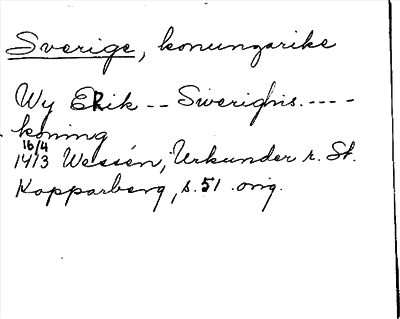 Sverige, konungarike
Wy ERik -- Swerighis.----
koning
16/4
1413 Wessén, Urkunder r. St.
Kopparberg, s. 51 .orig.